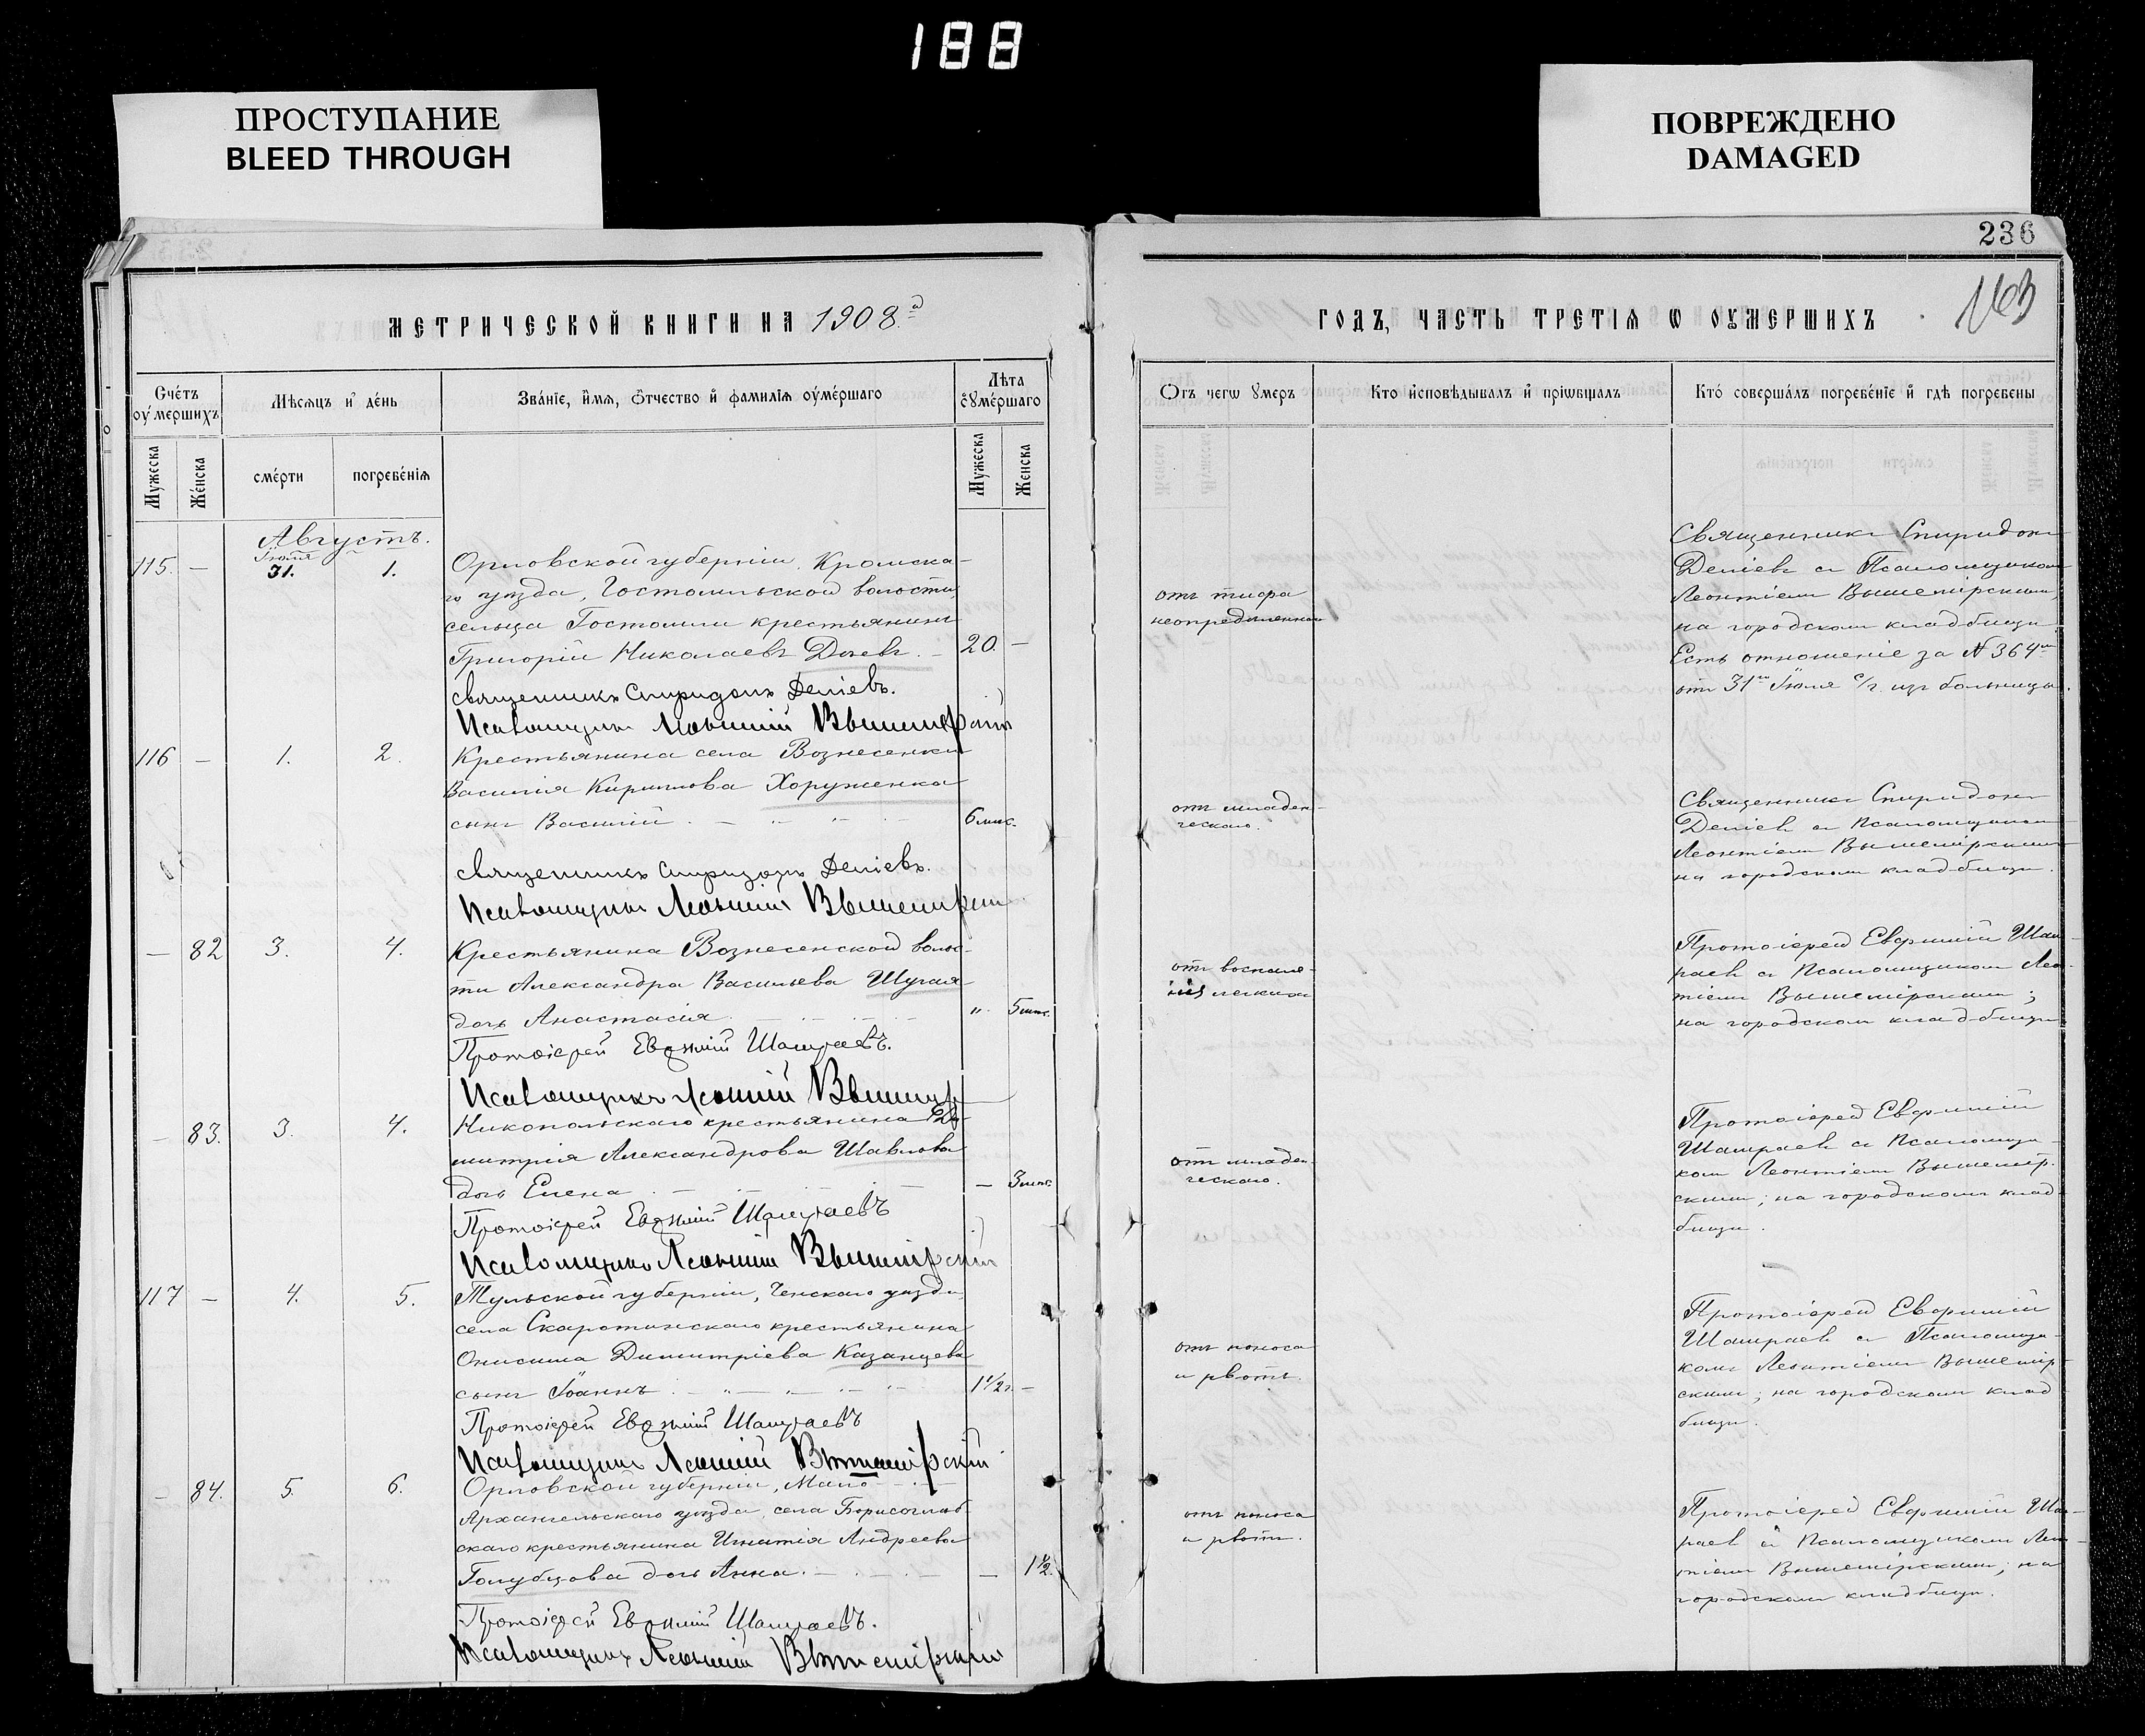 188
ПРОСТУПАНИЕ
BLEED THROUGH
ПОВРЕЖДЕНО
DAMAGED
236
163
МЕТРИЧЕСКОЙ КНИГИ НА 1908.й
ГОДЪ, ЧАСТЬ ТРЕТІѦ Ѡ ОУМЕРШИХЪ
Счетъ оумершихъ
Мѣсѧцъ и день
Званіе, имѧ, отчество и фамиліѧ оумершаго
Лѣта оумершаго
Мужеска
Женска
смерти
погребеніѧ
Мужеска
Женска
Отъ чегѡ умеръ
Кто исповѣдывалъ и пріѡбщалъ
Кто совершалъ погребеніе и гдѣ погребены
Августъ.
115. —
Іюля 31. 1.
Орловской губерніи, Кромска-
го уѣзда, Гостомльской волости
сельца Гостомли крестьянинъ
Григорій Николаевъ . — 20. —
священникъ Спиридонъ Деліевъ.
Псаломщикъ Леонтій Вышемірскій
отъ тифа
неопредѣленнаго
Священникъ Спиридонъ
Деліевъ съ Псаломщикомъ
Леонтіемъ Вышемірскимъ,
на городскомъ кладбищѣ.
Есть отношеніе за № 364
отъ 31го Іюля с/г. изъ больницы.
116 — 1. 2.
Крестьянина села Вознесенки
Василія Кириллова Хоруженка
сынъ Василій . — 6 мѣс.
священникъ Спиридонъ Деліевъ.
Псаломщикъ Леонтій Вышемірскій
отъ младен-
ческаго.
Священникъ Спиридонъ
Деліевъ съ Псаломщикомъ
Леонтіемъ Вышемірскимъ
на городскомъ кладбищѣ.
— 82 3. 4.
Крестьянина Вознесенской волос-
ти Александра Васильева Шугая
дочь Анастасія — „ 5 мѣс.
Протоіерей Евфимій Шамраевъ.
Псаломщикъ Леонтій Вышемір
отъ воспале-
нія легкихъ
Протоіерей Евфимій Шам-
раевъ съ Псаломщикомъ Леон-
тіемъ Вышемірскимъ;
на городскомъ кладбищѣ
— 83. 3. 4.
Никопольскаго крестьянина Ди-
митрія Александрова Шавлова
дочь Елена . — — 3 мѣс.
Протоіерей Евфимій Шамраевъ
Псаломщикъ Леонтій Вышемірскій
отъ младен-
ческаго.
Протоіерей Евфимій
Шамраевъ съ Псаломщи-
комъ Леонтіемъ Вышемір-
скимъ; на городскомъ клад-
бищѣ.
117 — 4. 5.
Тульской губерніи, Ченскаго уѣзда
села Скаротинскаго крестьянина
Онисима Димитріева Казанцева
сынъ Іоаннъ . — 1 1/2 г. —
Протоіерей Евфимій Шамраевъ
Псаломщикъ Леонтій Вышемірскій
отъ поноса
и рвоты.
Протоіерей Евфимій
Шамраевъ съ Псаломщи-
комъ Леонтіемъ Вышемір-
скимъ; на городскомъ клад-
бищѣ.
— 84. 5. 6.
Орловской губерніи, Мало-
Архангельскаго уѣзда, села Борисоглѣб-
скаго крестьянина Игнатія Андреева
Голубцова дочь Анна. — — 1 1/2.
Протоіерей Евфимій Шамраевъ.
Псаломщикъ Леонтій Вышемірскій
отъ поноса
и рвоты.
Протоіерей Евфимій Шам-
раевъ и Псаломщикомъ Леон-
тіемъ Вышемірскимъ; на
городскомъ кладбищѣ.